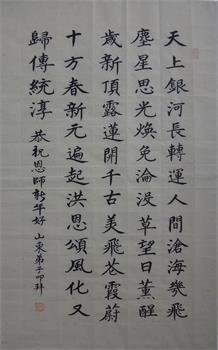 天上銀河長轉運人間滄海幾飛
塵星思光煥免淪沒草望日薰醒
歲新頂露蓮開千古美飛苍霞蔚
十方春新元遍起洪恩頌風化又
歸傳統淳 恭祝恩師新年好 山東弟子叩拜